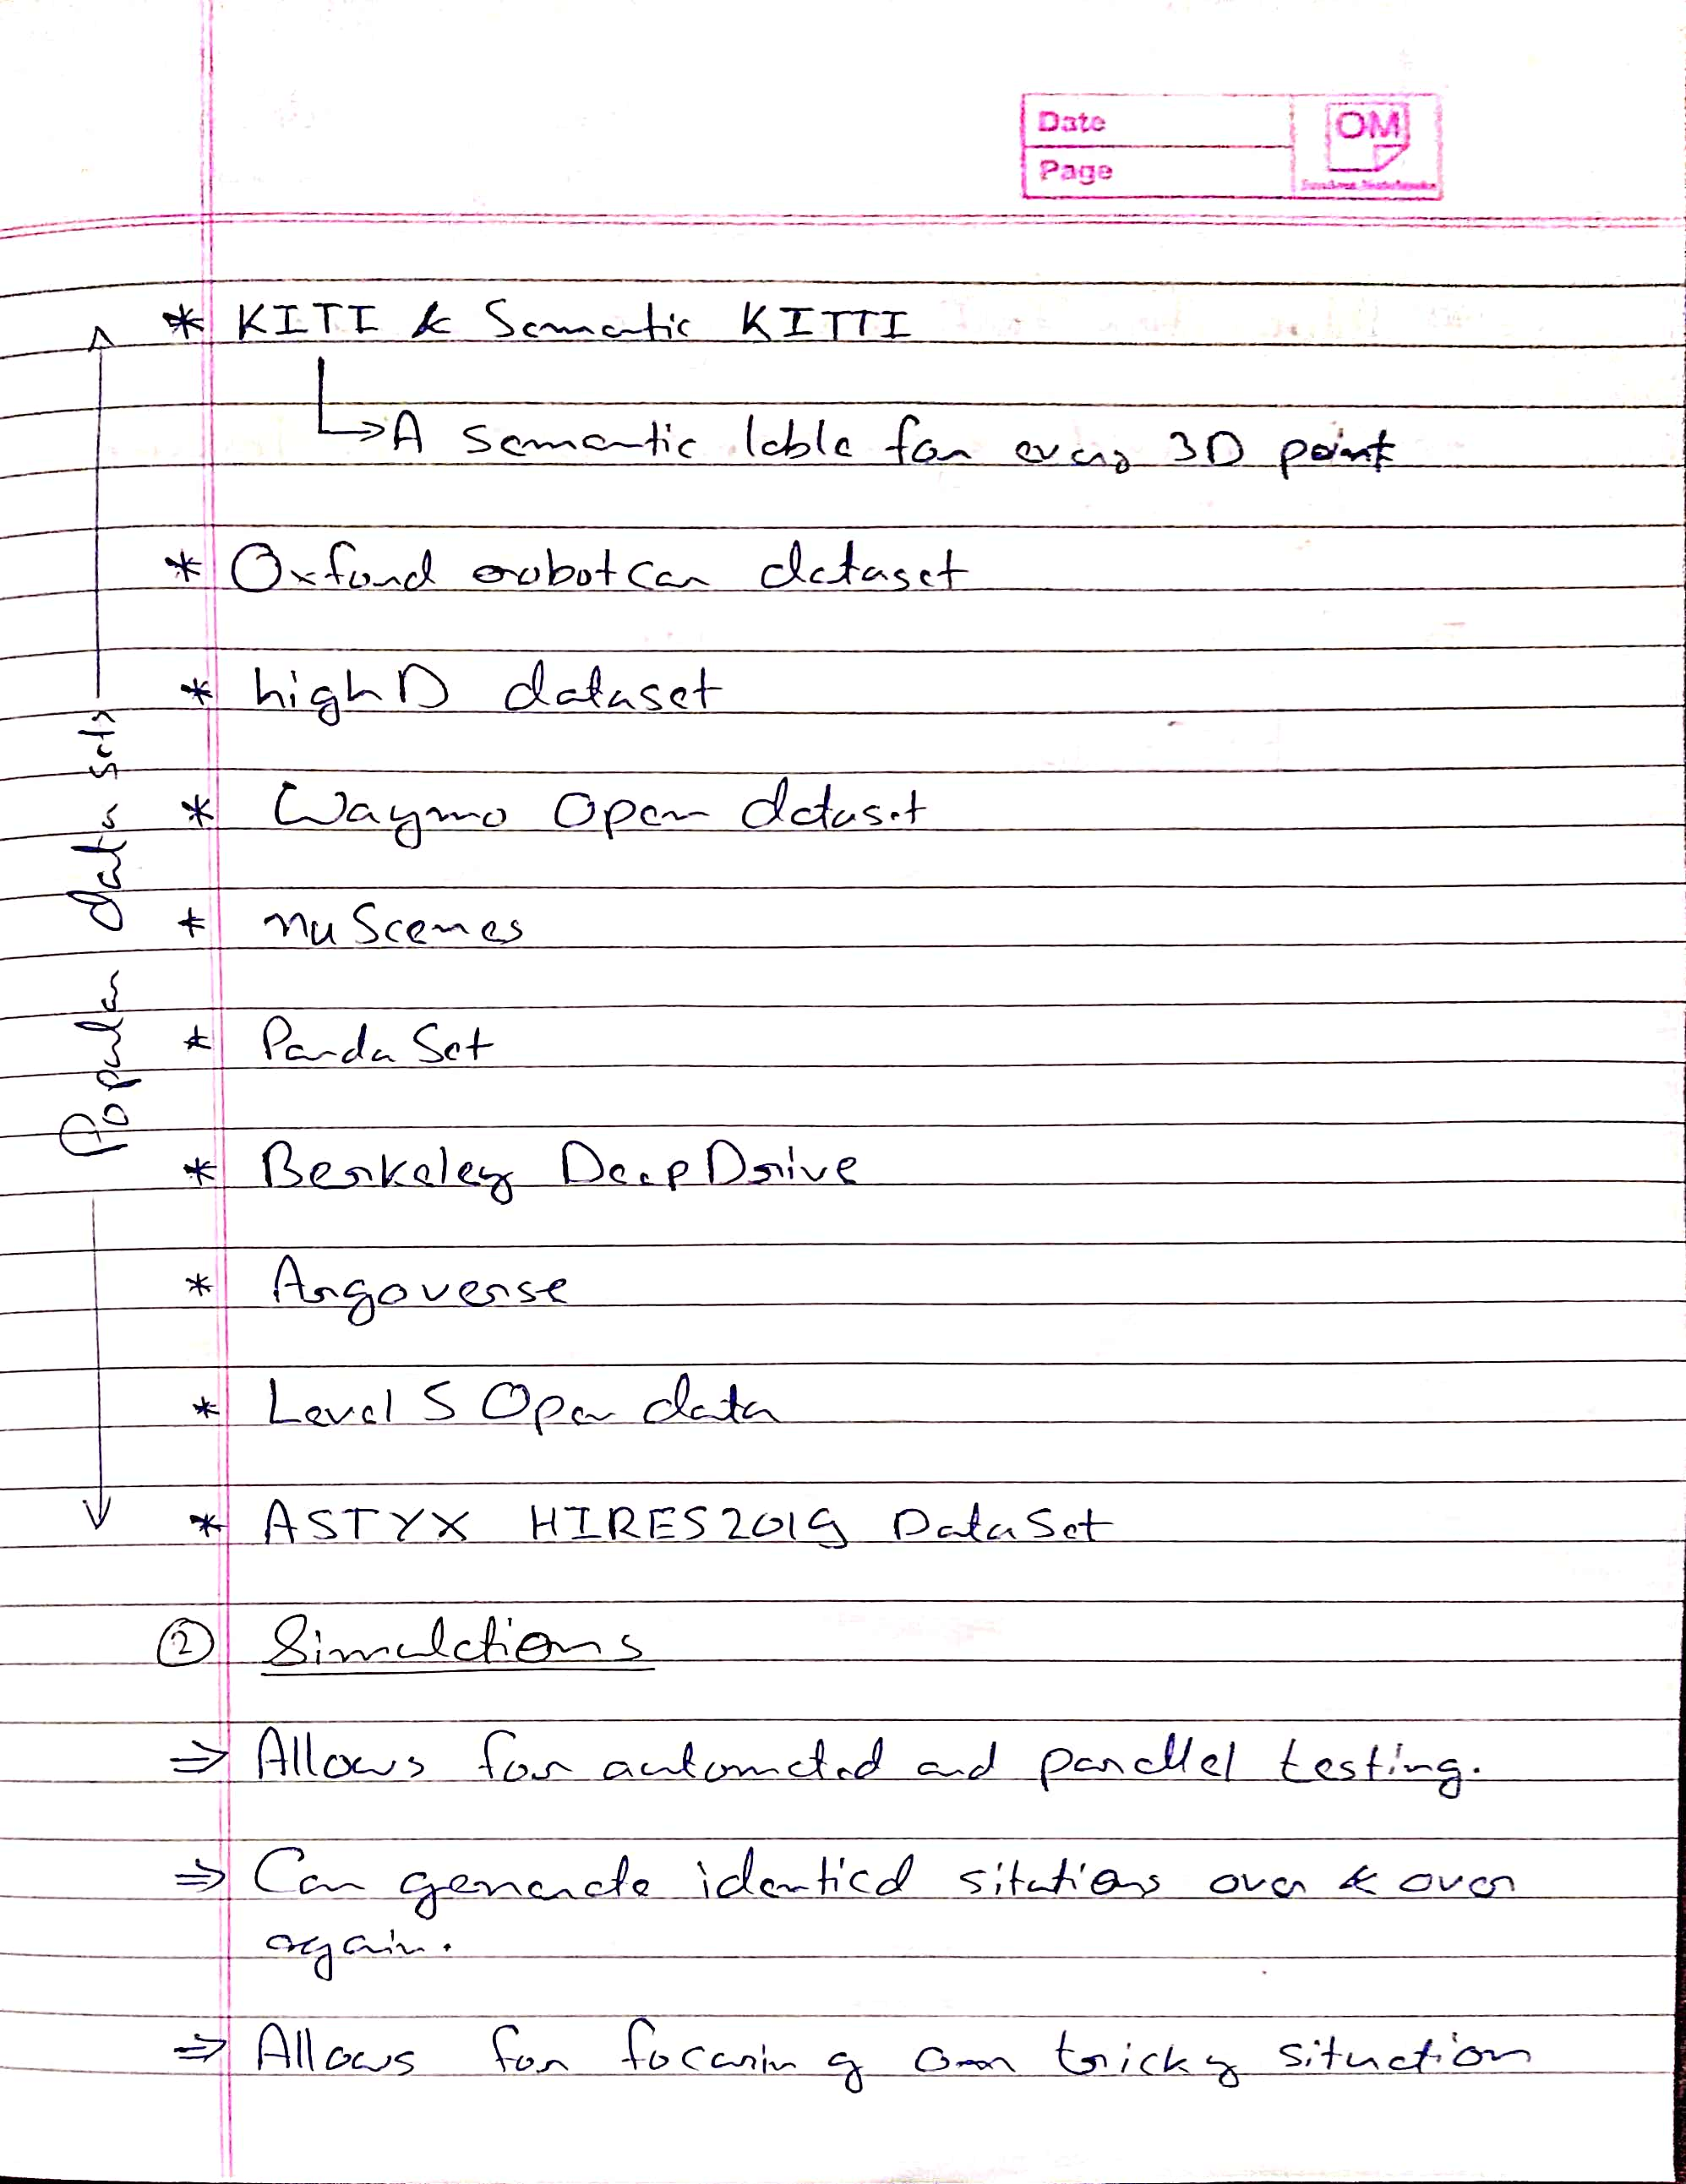 Date
OM
Page
* KITI & Semantic KITTI
↳ A semantic lable for every 3D point
* Oxford robotcar dataset
* highD dataset
* Waymo Open dataset
* nuScenes
* PandaSet
* Berkeley DeepDrive
* Argoverse
* Level 5 Open data
* ASTYX HIRES2019 DataSet
Popular data sets
② Simulations
⇒ Allows for automated and parallel testing.
⇒ Can generate identical sitations over & over
again.
⇒ Allows for focusing on tricky situation